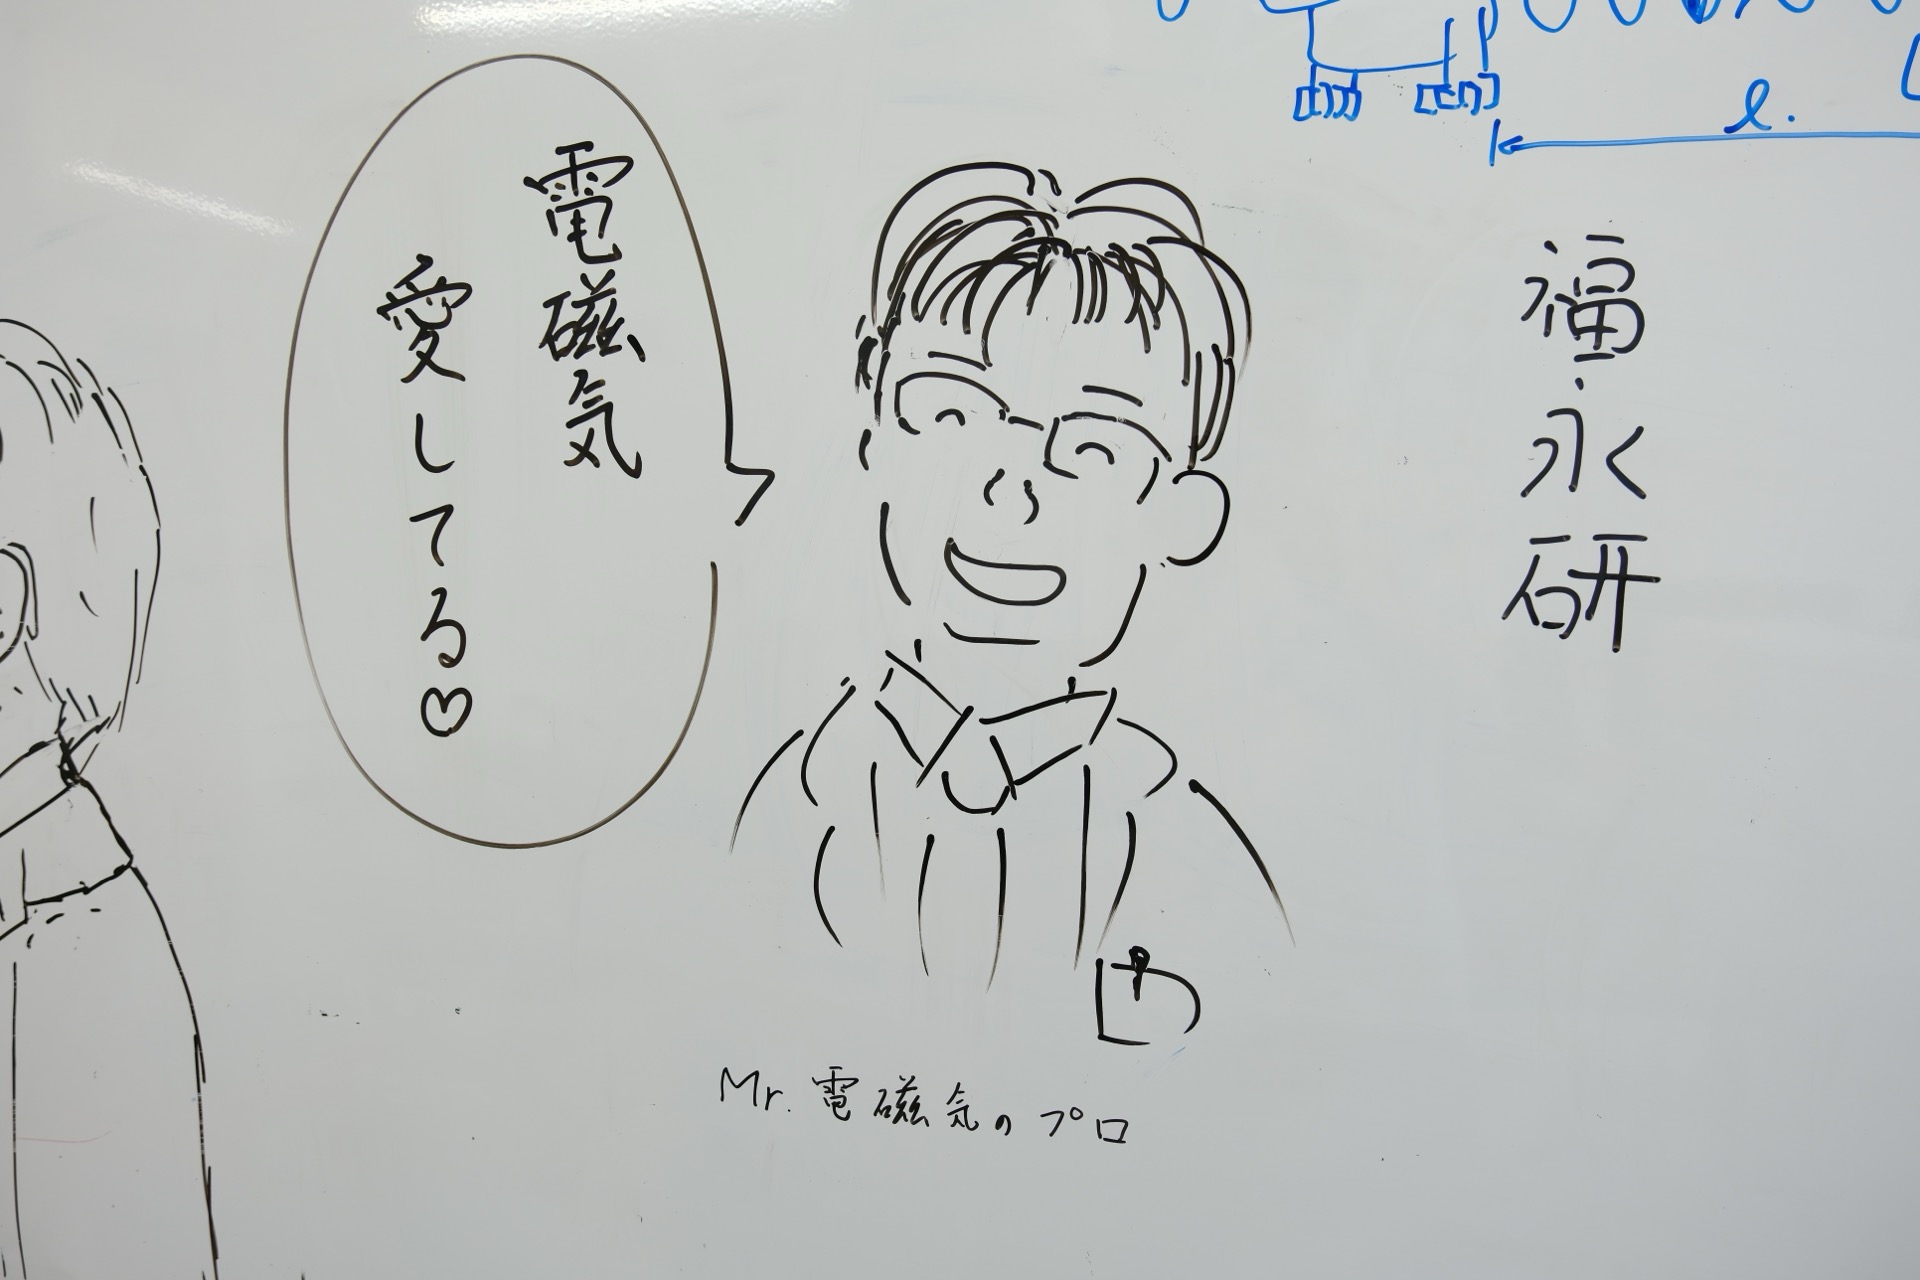 福永研
電磁気
愛してる♡
Mr.電磁気のプロ
l.